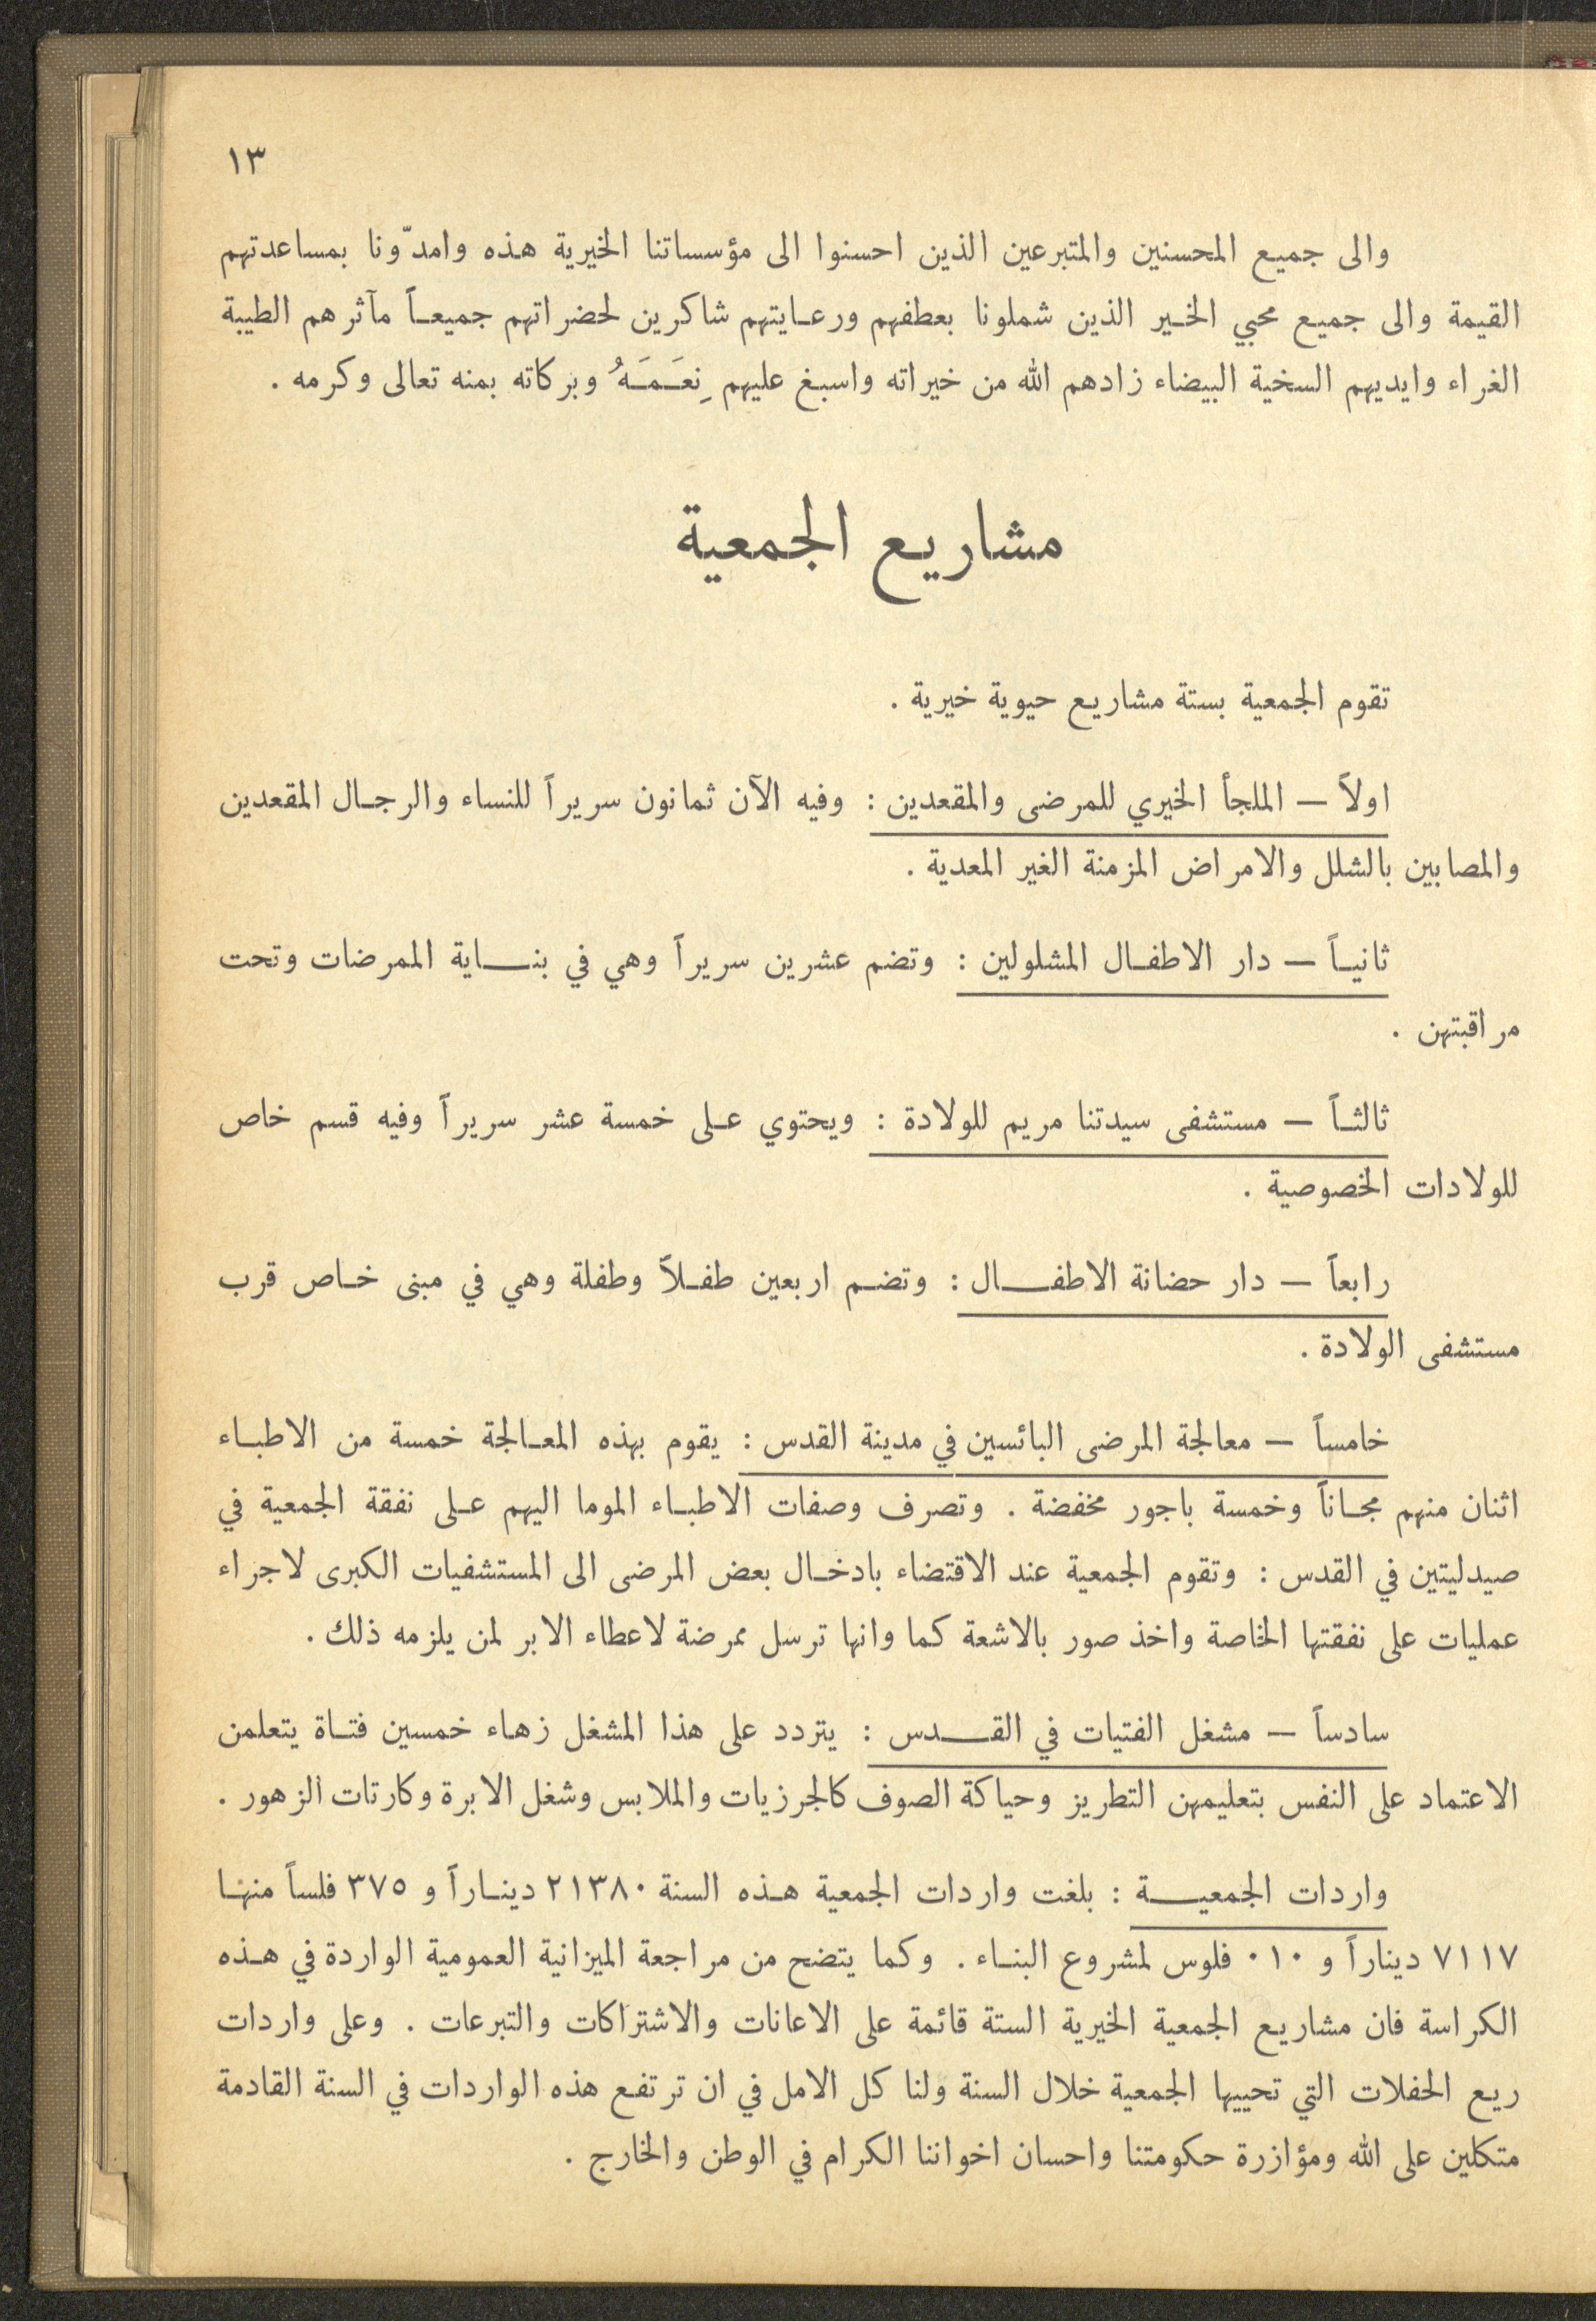 ١٣
والى جميع المحسنين والمتبرعين الذين احسنوا الى مؤسساتنا الخيرية هذه وامدّونا بمساعدتهم
القيمة والى جميع محبي الخير الذين شملونا بعطفهم ورعايتهم شاكرين لحضراتهم جميعاً مآثرهم الطيبة
الغراء وايديهم السخية البيضاء زادهم الله من خيراته واسبغ عليهم نِعَمَهُ وبركاته بمنه تعالى وكرمه .
مشاريع الجمعية
تقوم الجمعية بستة مشاريع حيوية خيرية .
اولاً — الملجأ الخيري للمرضى والمقعدين : وفيه الآن ثمانون سريراً للنساء والرجال المقعدين
والمصابين بالشلل والامراض المزمنة الغير المعدية .
ثانياً — دار الاطفال المشلولين : وتضم عشرين سريراً وهي في بناية الممرضات وتحت
مراقبتهن .
ثالثاً — مستشفى سيدتنا مريم للولادة : ويحتوي على خمسة عشر سريراً وفيه قسم خاص
للولادات الخصوصية .
رابعاً — دار حضانة الاطفال : وتضم اربعين طفلاً وطفلة وهي في مبنى خاص قرب
مستشفى الولادة .
خامساً — معالجة المرضى البائسين في مدينة القدس : يقوم بهذه المعالجة خمسة من الاطباء
اثنان منهم مجاناً وخمسة باجور مخفضة . وتصرف وصفات الاطباء الموما اليهم على نفقة الجمعية في
صيدليتين في القدس : وتقوم الجمعية عند الاقتضاء بادخال بعض المرضى الى المستشفيات الكبرى لاجراء
عمليات على نفقتها الخاصة واخذ صور بالاشعة كما وانها ترسل ممرضة لاعطاء الابر لمن يلزمه ذلك .
سادساً — مشغل الفتيات في القدس : يتردد على هذا المشغل زهاء خمسين فتاة يتعلمن
الاعتماد على النفس بتعليمهن التطريز وحياكة الصوف كالجرزيات والملابس وشغل الابرة وكارتات الزهور .
واردات الجمعية : بلغت واردات الجمعية هذه السنة ٢١٣٨٠ ديناراً و ٣٧٥ فلساً منها
٧١١٧ ديناراً و ٠١٠ فلوس لمشروع البناء . وكما يتضح من مراجعة الميزانية العمومية الواردة في هذه
الكراسة فان مشاريع الجمعية الخيرية الستة قائمة على الاعانات والاشتراكات والتبرعات . وعلى واردات
ريع الحفلات التي تحييها الجمعية خلال السنة ولنا كل الامل في ان ترتفع هذه الواردات في السنة القادمة
متكلين على الله ومؤازرة حكومتنا واحسان اخواننا الكرام في الوطن والخارج .